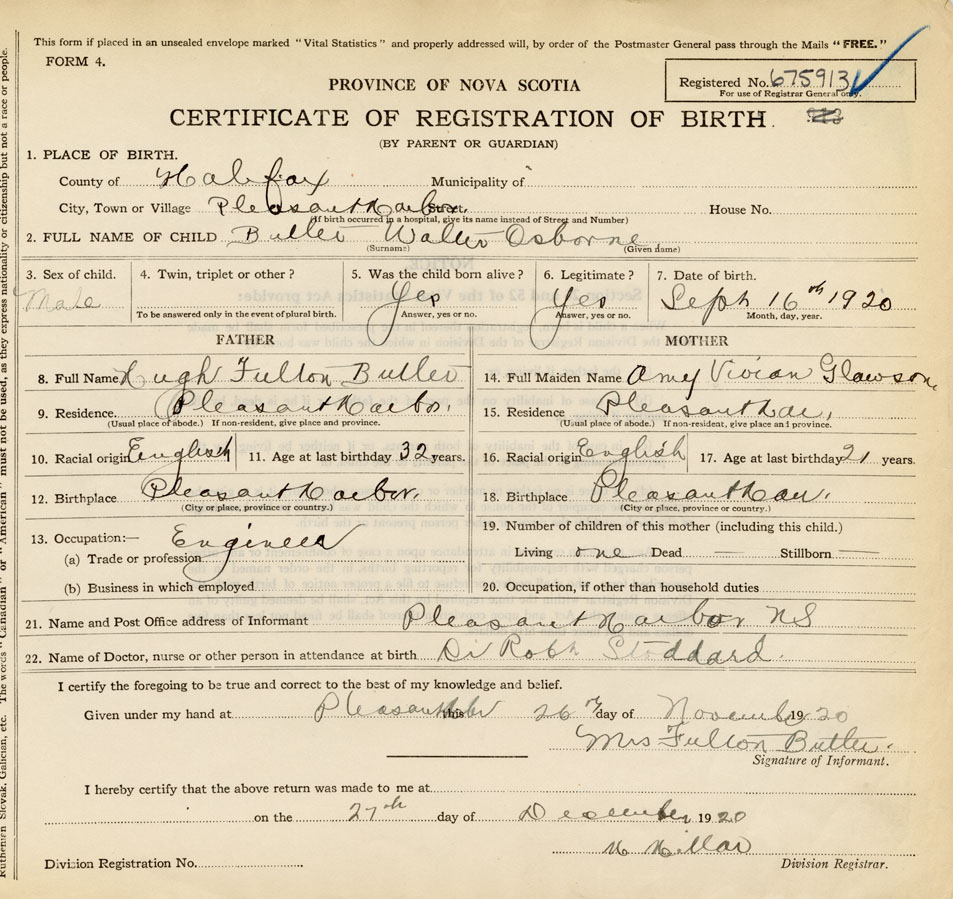 This form if placed in an unsealed envelope marked "Vital Statistics" and properly addressed will, by order of the Postmaster General pass through the Mails "FREE."
FORM 4.
Registered No. 675913
For use of Registrar General only.
PROVINCE OF NOVA SCOTIA
CERTIFICATE OF REGISTRATION OF BIRTH.
(BY PARENT OR GUARDIAN)
1. PLACE OF BIRTH.
County of Halifax Municipality of
City, Town or Village Pleasant Harbor Street, House No.
(If birth occurred in a hospital, give its name instead of Street and Number)
2. FULL NAME OF CHILD Butler Walter Osborne
(Surname) (Given name)
3. Sex of child. 4. Twin, triplet or other? 5. Was the child born alive? 6. Legitimate? 7. Date of birth.
Male Yes Yes Sept 16th 1920
To be answered only in the event of plural birth. Answer, yes or no. Answer, yes or no. Month, day, year.
FATHER MOTHER
8. Full Name Hugh Fulton Butler 14. Full Maiden Name Amy Vivian Glawson
9. Residence. Pleasant Harbor. 15. Residence Pleasant Har.
(Usual place of abode.) If non-resident, give place and province. (Usual place of abode.) If non-resident, give place and province.
10. Racial origin English 11. Age at last birthday 32 years. 16. Racial origin English 17. Age at last birthday 21 years.
12. Birthplace Pleasant Harbor. 18. Birthplace Pleasant Har.
(City or place, province or country.) (City or place, province or country.)
13. Occupation:— Engineer 19. Number of children of this mother (including this child.)
(a) Trade or profession Living one Dead — Stillborn —
(b) Business in which employed 20. Occupation, if other than household duties
21. Name and Post Office address of Informant Pleasant Harbor NS
22. Name of Doctor, nurse or other person in attendance at birth Dr Robt Stoddard.
I certify the foregoing to be true and correct to the best of my knowledge and belief.
Given under my hand at Pleasant Hbr this 26th day of November 1920
Mrs Fulton Butler.
Signature of Informant.
I hereby certify that the above return was made to me at
on the 27th day of December 1920
Division Registration No. Division Registrar.
Ruthenian Slovak, Galician, etc. The words "Canadian" or "American" must not be used, as they express nationality or citizenship but not a race or people.